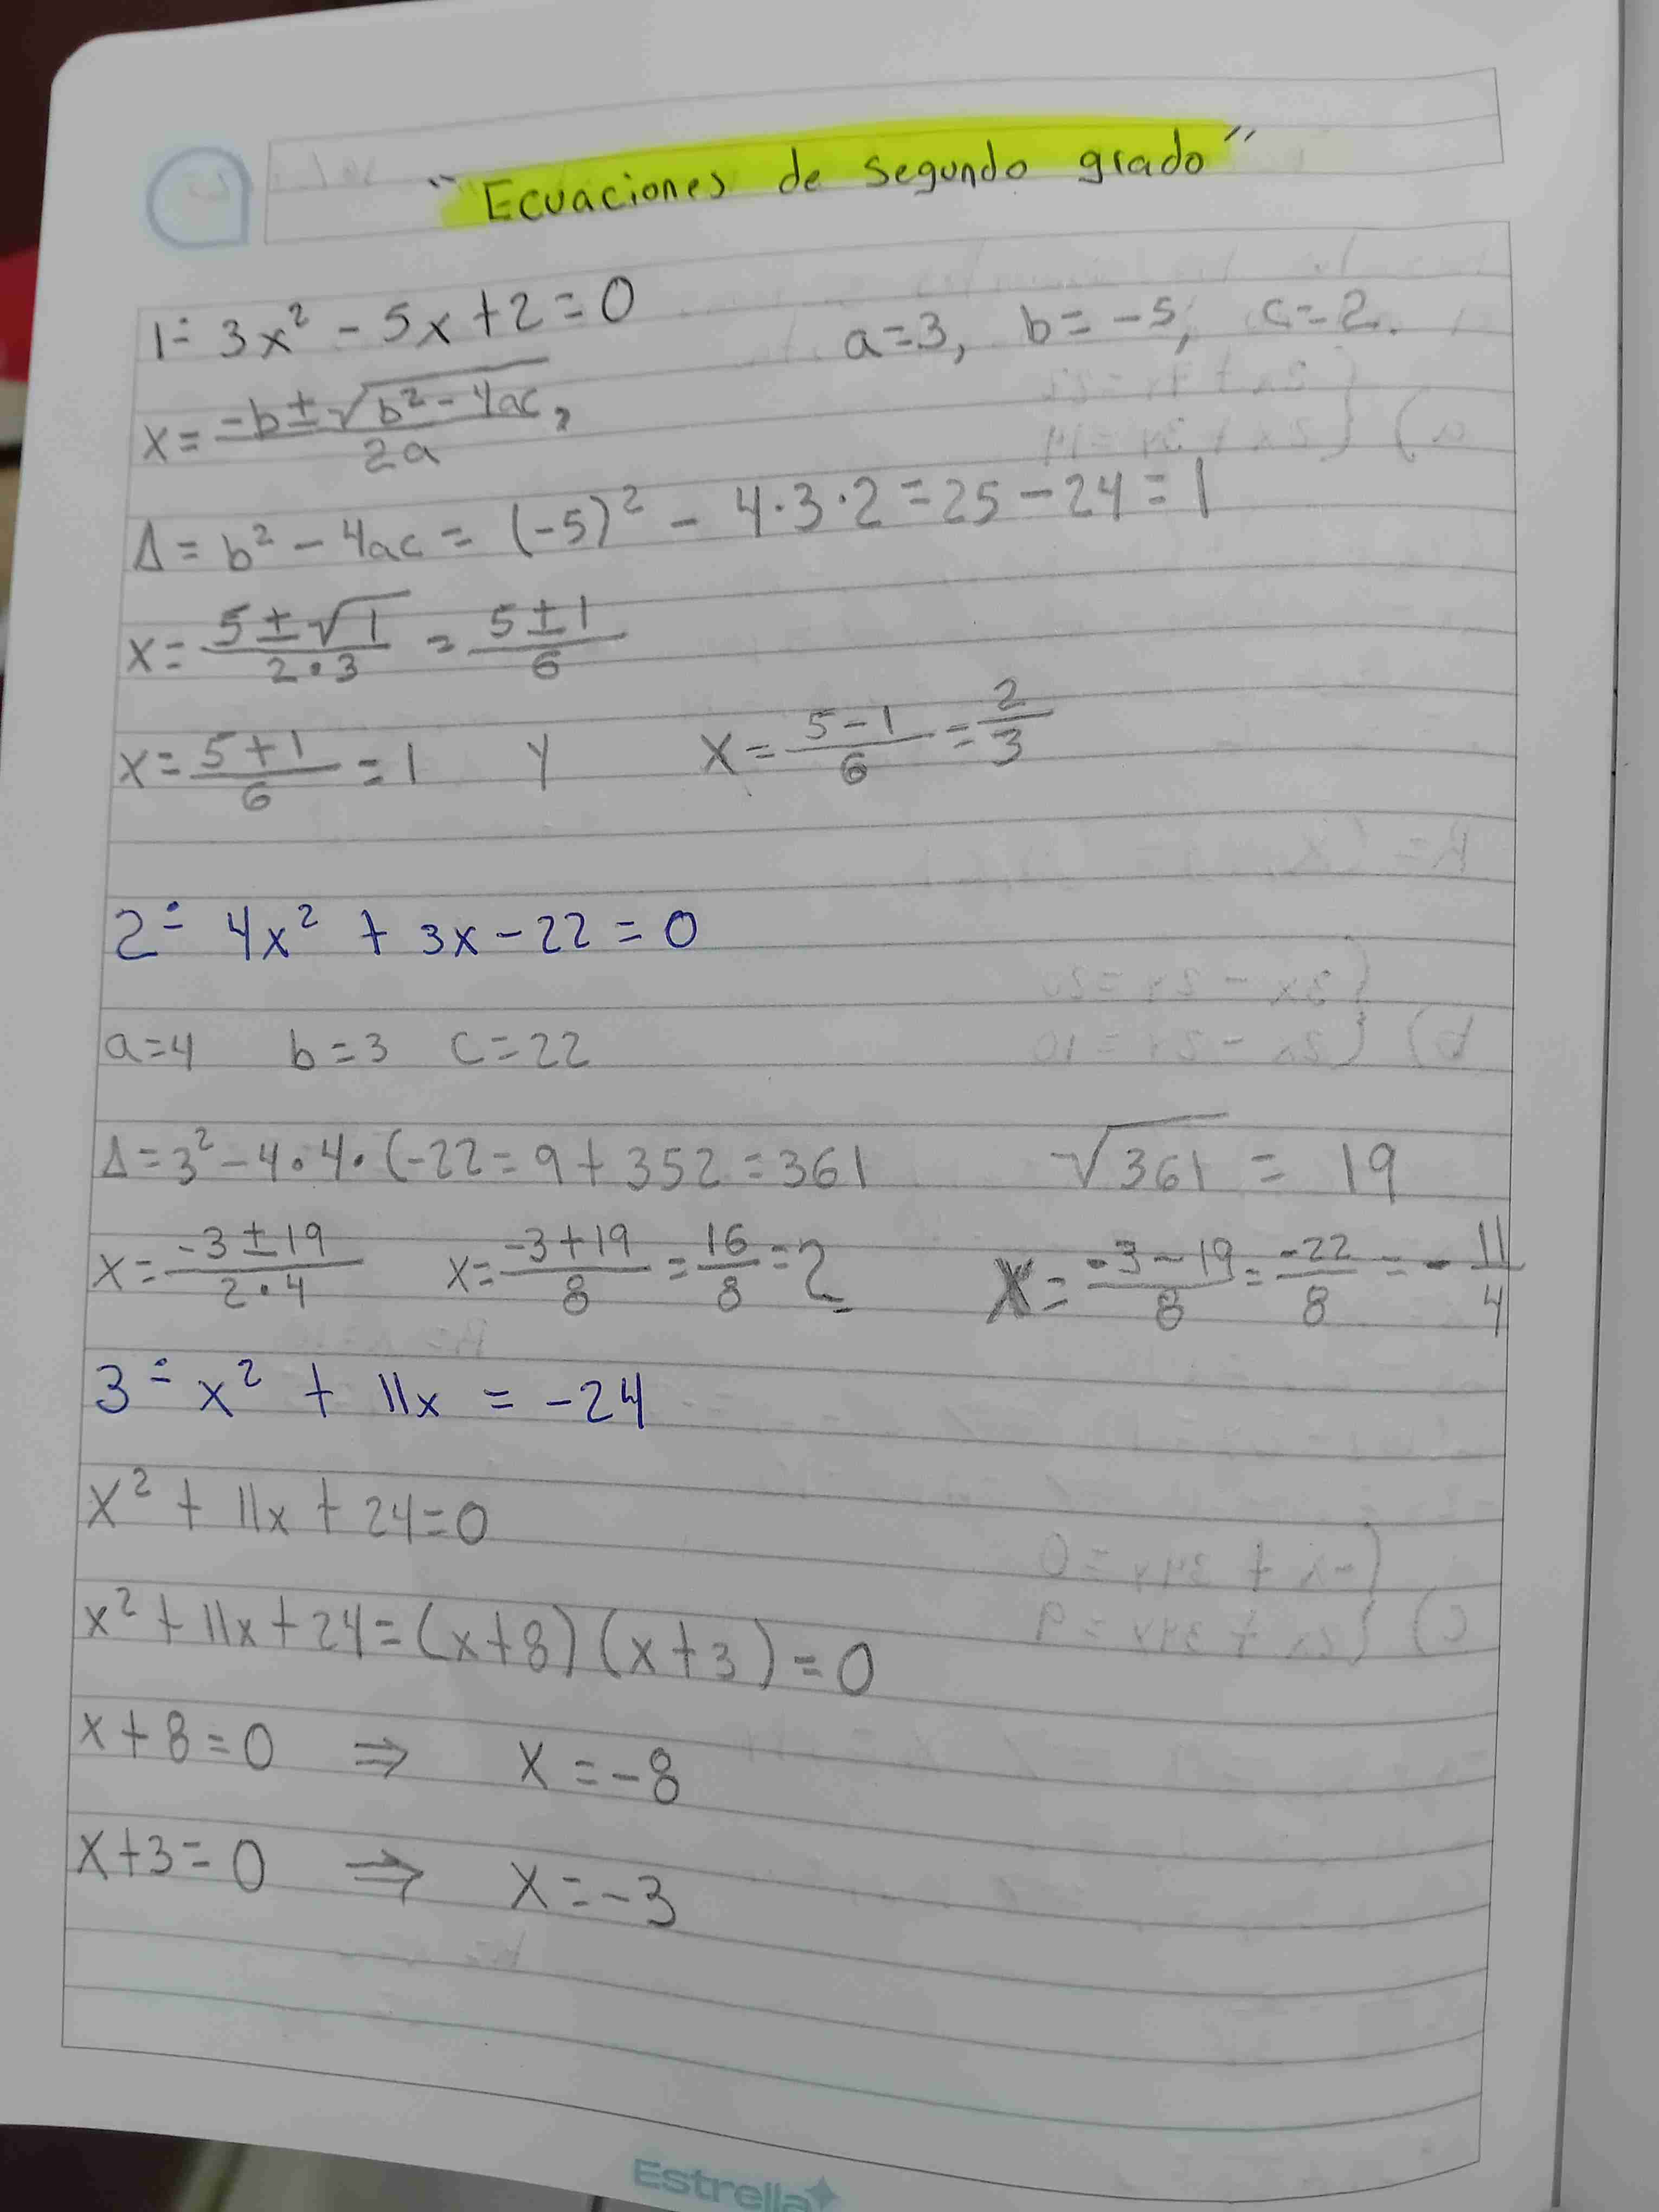 "Ecuaciones de segundo grado"
1.- 3x² - 5x + 2 = 0 a=3, b=-5, c=2.
x = (-b ± √(b² - 4ac)) / 2a,
Δ = b² - 4ac = (-5)² - 4·3·2 = 25 - 24 = 1
x = (5 ± √1) / (2·3) = (5 ± 1) / 6
x = (5+1)/6 = 1 y x = (5-1)/6 = 2/3
2.- 4x² + 3x - 22 = 0
a=4 b=3 c=22
Δ = 3² - 4·4·(-22 = 9 + 352 = 361 √361 = 19
x = (-3 ± 19) / (2·4) x = (-3+19)/8 = 16/8 = 2 x = (-3-19)/8 = -22/8 = - 11/4
3.- x² + 11x = -24
x² + 11x + 24 = 0
x² + 11x + 24 = (x+8)(x+3) = 0
x + 8 = 0 ⇒ x = -8
x + 3 = 0 ⇒ x = -3
Estrella